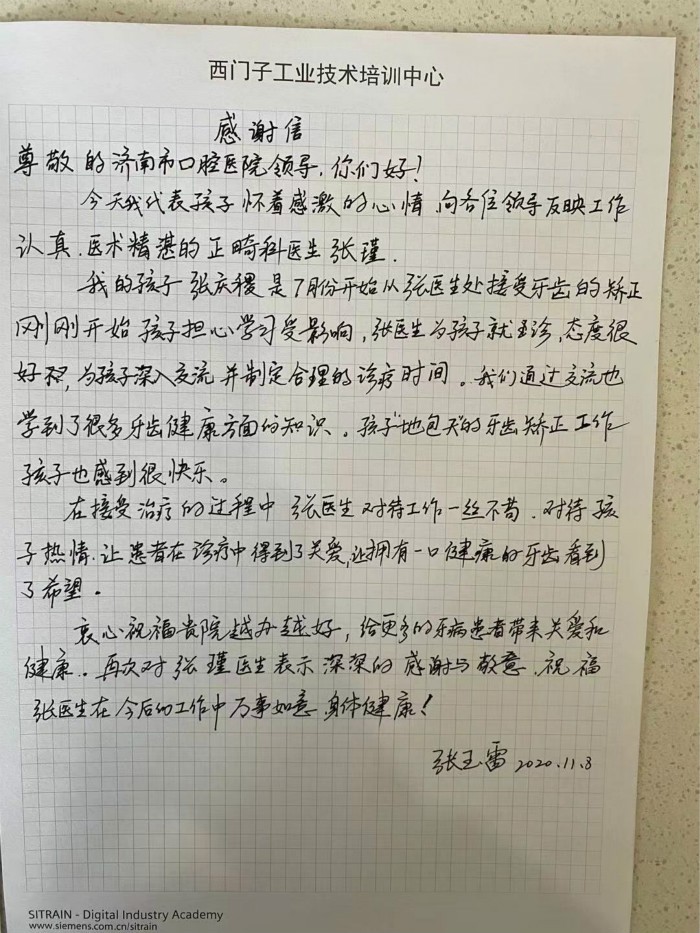 西门子工业技术培训中心
感谢信
尊敬的济南市口腔医院领导,你们好!
今天我代表孩子怀着感激的心情 向各位领导反映工作
认真.医术精湛的正畸科医生张瑾.
我的孩子张庆稷是7月份开始从张医生处接受牙齿的矫正
刚刚开始孩子担心学习受影响,张医生为孩子就诊,态度很
好,为孩子深入交流并制定合理的诊疗时间。我们通过交流也
学到了很多牙齿健康方面的知识。孩子"地包天"的牙齿矫正工作
孩子也感到很快乐。
在接受治疗的过程中 张医生对待工作一丝不苟.对待孩
子热情.让患者在诊疗中得到了关爱,让拥有一口健康的牙齿看到
了希望.
衷心祝福贵院越办越好,给更多的牙病患者带来关爱和
健康..再次对张瑾医生表示深深的感谢与敬意.祝福
张医生在今后的工作中万事如意 身体健康!
张玉雷 2020.11.8
SITRAIN - Digital Industry Academy
www.siemens.com.cn/sitrain